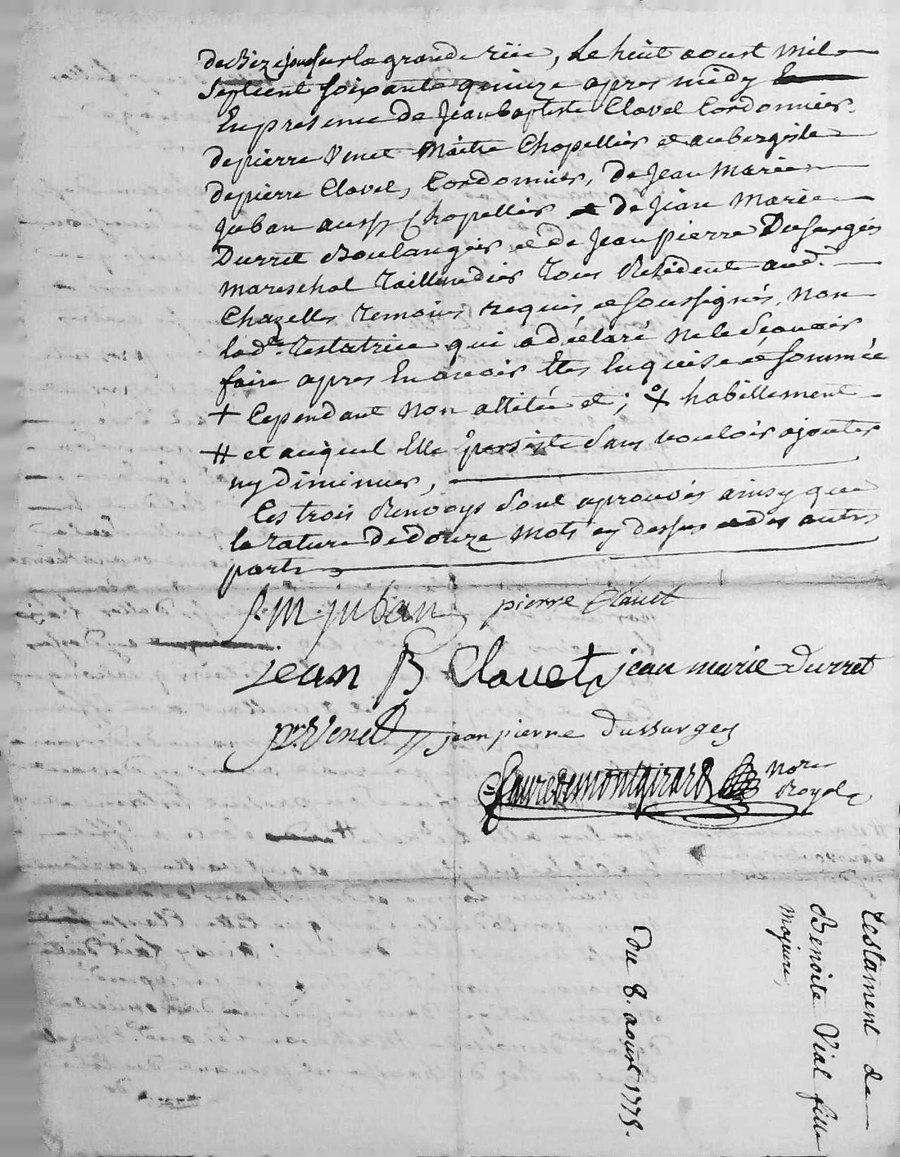 sur la grande rüe, Le huit aoust mil
Septcent soixante quinze apres midy
En presence de Jean Baptiste Clavel Cordonnier
de pierre Venet Maitre Chapellier et aubergiste
de pierre Clavel, Cordonnier, de Jean Marie
Juban aussy Chapellier et de Jean Marie
Durret Boulanger et de Jean pierre Dusurgés
Mareschal Taillendier Tous Résident aud.
Chazelles Temoins requis, et soussignés, Non
lad.e Testatrice qui a declaré ne le Scavoir
faire apres En avoir Eté Enquise et sommée
+ Cependant Non attitée et; habillement
# et auquel Elle persiste Sans vouloir ajouter
ny diminuer,
Ces trois Renvoys Sont aprouvés ainsy que
la rature de douze mots cy dessus et des autres
parts
J. M. juban pierre Clavet
jean B Clavet jean marie Durret
pre Venet jean pierre Dussurgey
Favre de montgirard Nore
Royal
Testament de
Benoite Vial fille
Majeure,
Du 8. aoust 1775.